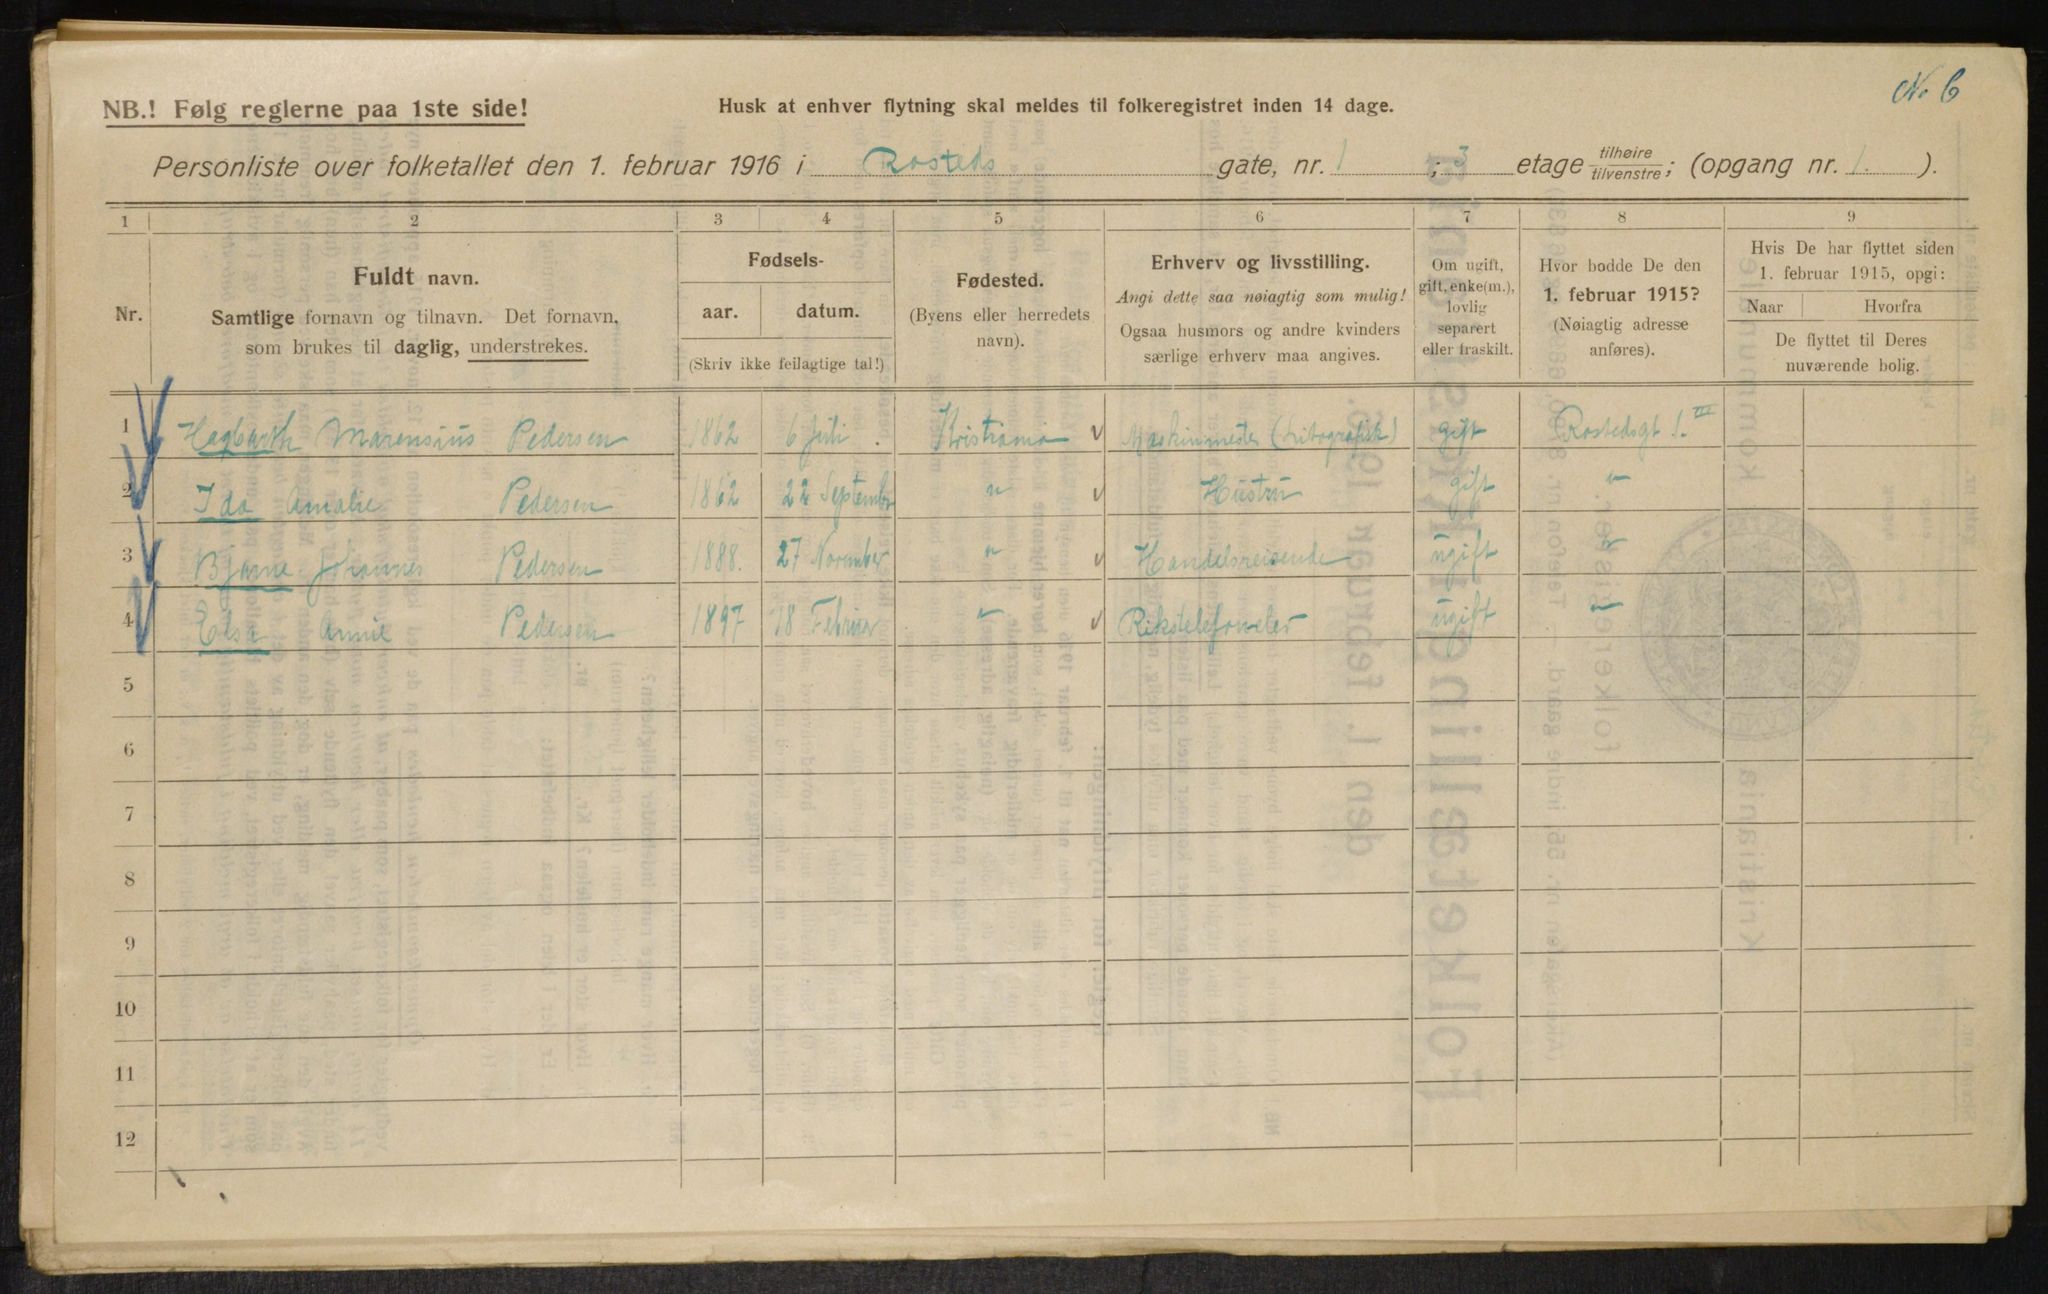 No 6
NB.! Følg reglerne paa 1ste side!
Husk at enhver flytning skal meldes til folkeregistret inden 14 dage.
Personliste over folketallet den 1. februar 1916 i Rosteds gate, nr. 1 ; 3 etage tilhøire/tilvenstre; (opgang nr. 1. ).
1 2 3 4 5 6 7 8 9
Nr.
Fuldt navn.
Samtlige fornavn og tilnavn. Det fornavn,
som brukes til daglig, understrekes.
Fødsels-
aar. datum.
(Skriv ikke feilagtige tal!)
Fødested.
(Byens eller herredets
navn).
Erhverv og livsstilling.
Angi dette saa nøiagtig som mulig!
Ogsaa husmors og andre kvinders
særlige erhverv maa angives.
Om ugift,
gift, enke(m.),
lovlig
separert
eller fraskilt.
Hvor bodde De den
1. februar 1915?
(Nøiagtig adresse
anføres).
Hvis De har flyttet siden
1. februar 1915, opgi:
Naar Hvorfra
De flyttet til Deres
nuværende bolig.
1 Hagbarth Marensius Pedersen 1862 6 Juli Kristiania Maskinmester (Litografisk) gift Rostedsgt 1. III
2 Ida Amalie Pedersen 1862 22 September " Hustru gift "
3 Bjarne Johannes Pedersen 1888. 27 November " Handelsreisende ugift "
4 Elsa Annie Pedersen 1897 18 Februar " Rikstelefonelev ugift "
5
6
7
8
9
10
11
12